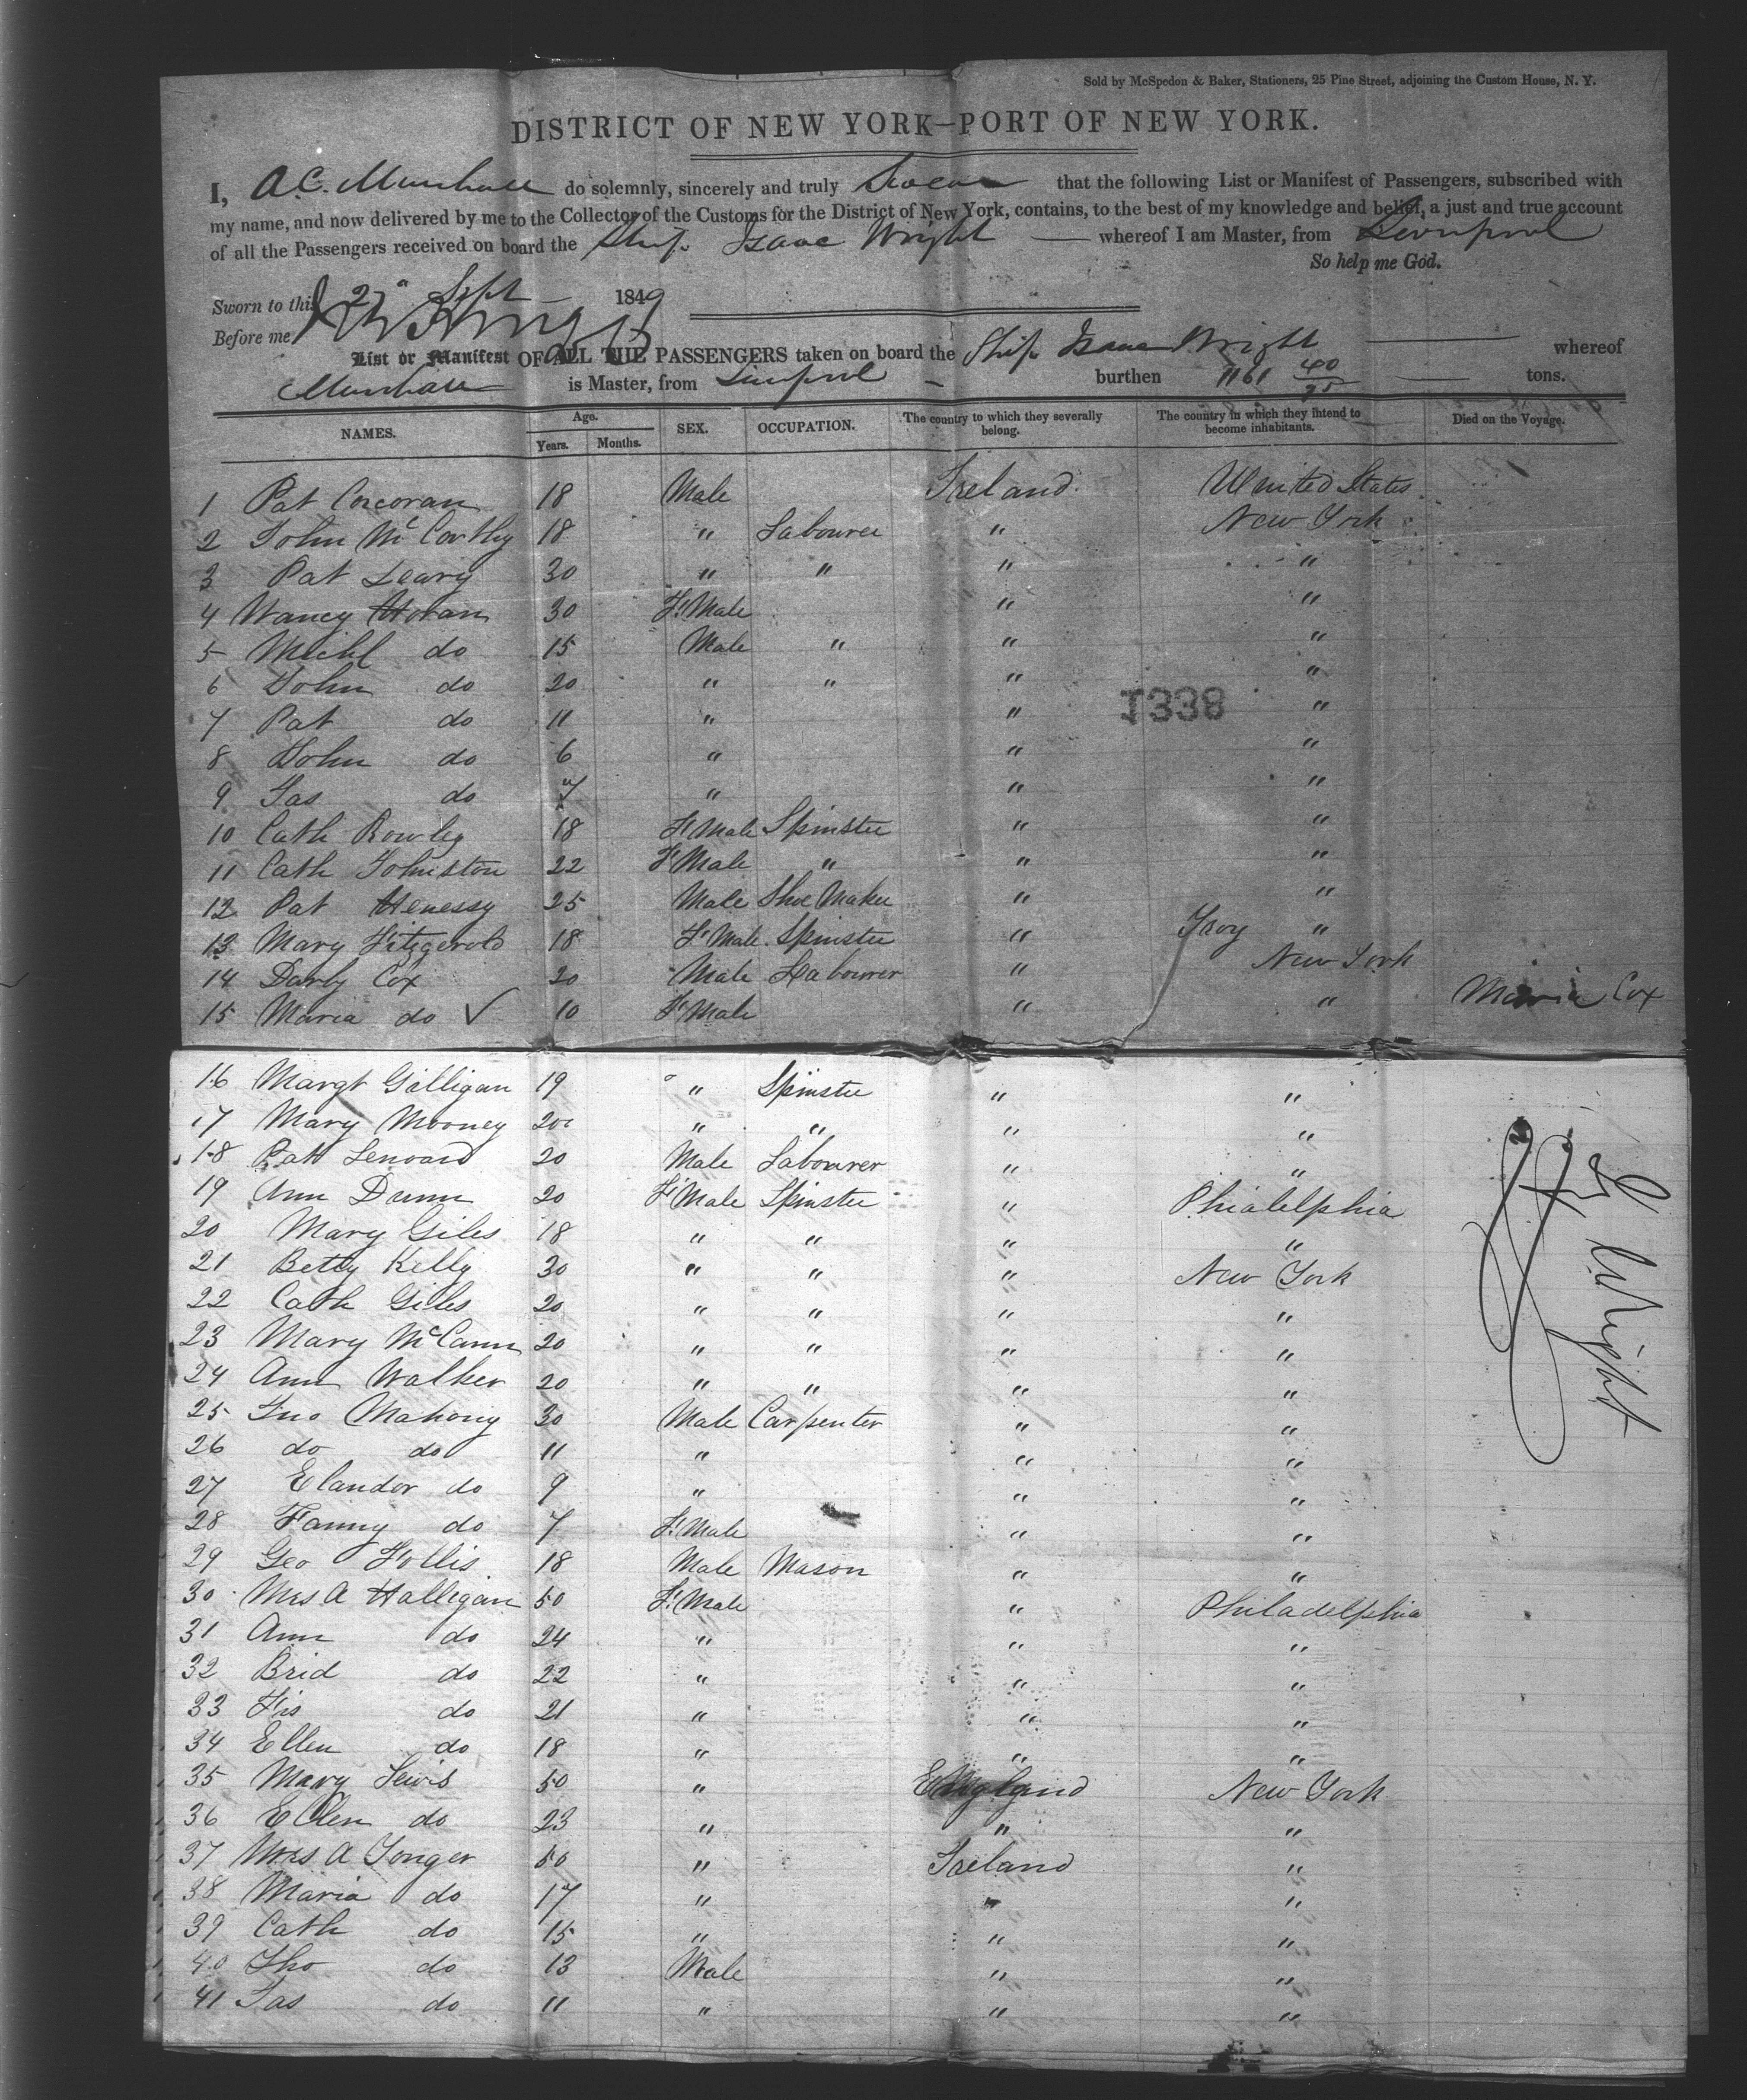 Sold by McSpedon & Baker, Stationers, 25 Pine Street, adjoining the Custom House, N. Y.
DISTRICT OF NEW YORK—PORT OF NEW YORK.
I, A.C. Marshall do solemnly, sincerely and truly Swear that the following List or Manifest of Passengers, subscribed with
my name, and now delivered by me to the Collector of the Customs for the District of New York, contains, to the best of my knowledge and belief, a just and true account
of all the Passengers received on board the Ship Isaac Wright whereof I am Master, from Liverpool
So help me God.
Sworn to this Sept 1849
Before me
List or Manifest OF ALL THE PASSENGERS taken on board the Ship Isaac Wright whereof
Marshall is Master, from Liverpool burthen 1161 40/95 tons.
NAMES. Age. Years. Months. SEX. OCCUPATION. The country to which they severally belong. The country in which they intend to become inhabitants. Died on the Voyage.
1 Pat Corcoran 18 Male Ireland United States
2 John McCarthy 18 " Labourer " New York
3 Pat Leary 30 " " " "
4 Nancy Horan 30 F.Male " "
5 Michl do 15 Male " " "
6 John do 20 " " " "
7 Pat do 11 " " "
8 John do 6 " " "
9 Jas do 7 " " "
10 Cath Rowley 18 F.Male Spinster " "
11 Cath Johnston 22 F.Male " " "
12 Pat Henessy 25 Male Shoe Maker " "
13 Mary Fitzgerald 18 F.Male Spinster " Troy "
14 Darby Cox 20 Male Labourer " New York
15 Maria do ✓ 10 F.Male " " Maria Cox
1338
16 Margt Gilligan 19 " Spinster " "
17 Mary Mooney 20 " " " "
18 Patt Lenoard 20 Male Labourer " "
19 Ann Dunn 20 F.Male Spinster " Phialelphia
20 Mary Giles 18 " " " "
21 Betty Kelly 30 " " " New York
22 Cath Giles 20 " " " "
23 Mary McCann 20 " " " "
24 Ann Walker 20 " " " "
25 Jno Mahony 30 Male Carpenter " "
26 do do 11 " " "
27 Elandor do 9 " " "
28 Fanny do 7 F.Male " "
29 Geo Follis 18 Male Mason " "
30 Mrs A Halligan 50 F.Male " Philadelphia
31 Ann do 24 " " "
32 Brid do 22 " " "
33 Fis do 21 " " "
34 Ellen do 18 " " "
35 Mary Lewis 50 " England New York
36 Ellen do 23 " " "
37 Mrs A Tonger 50 " Ireland "
38 Maria do 17 " " "
39 Cath do 15 " " "
40 Tho do 13 Male " "
41 Jas do 11 " " "
Wright